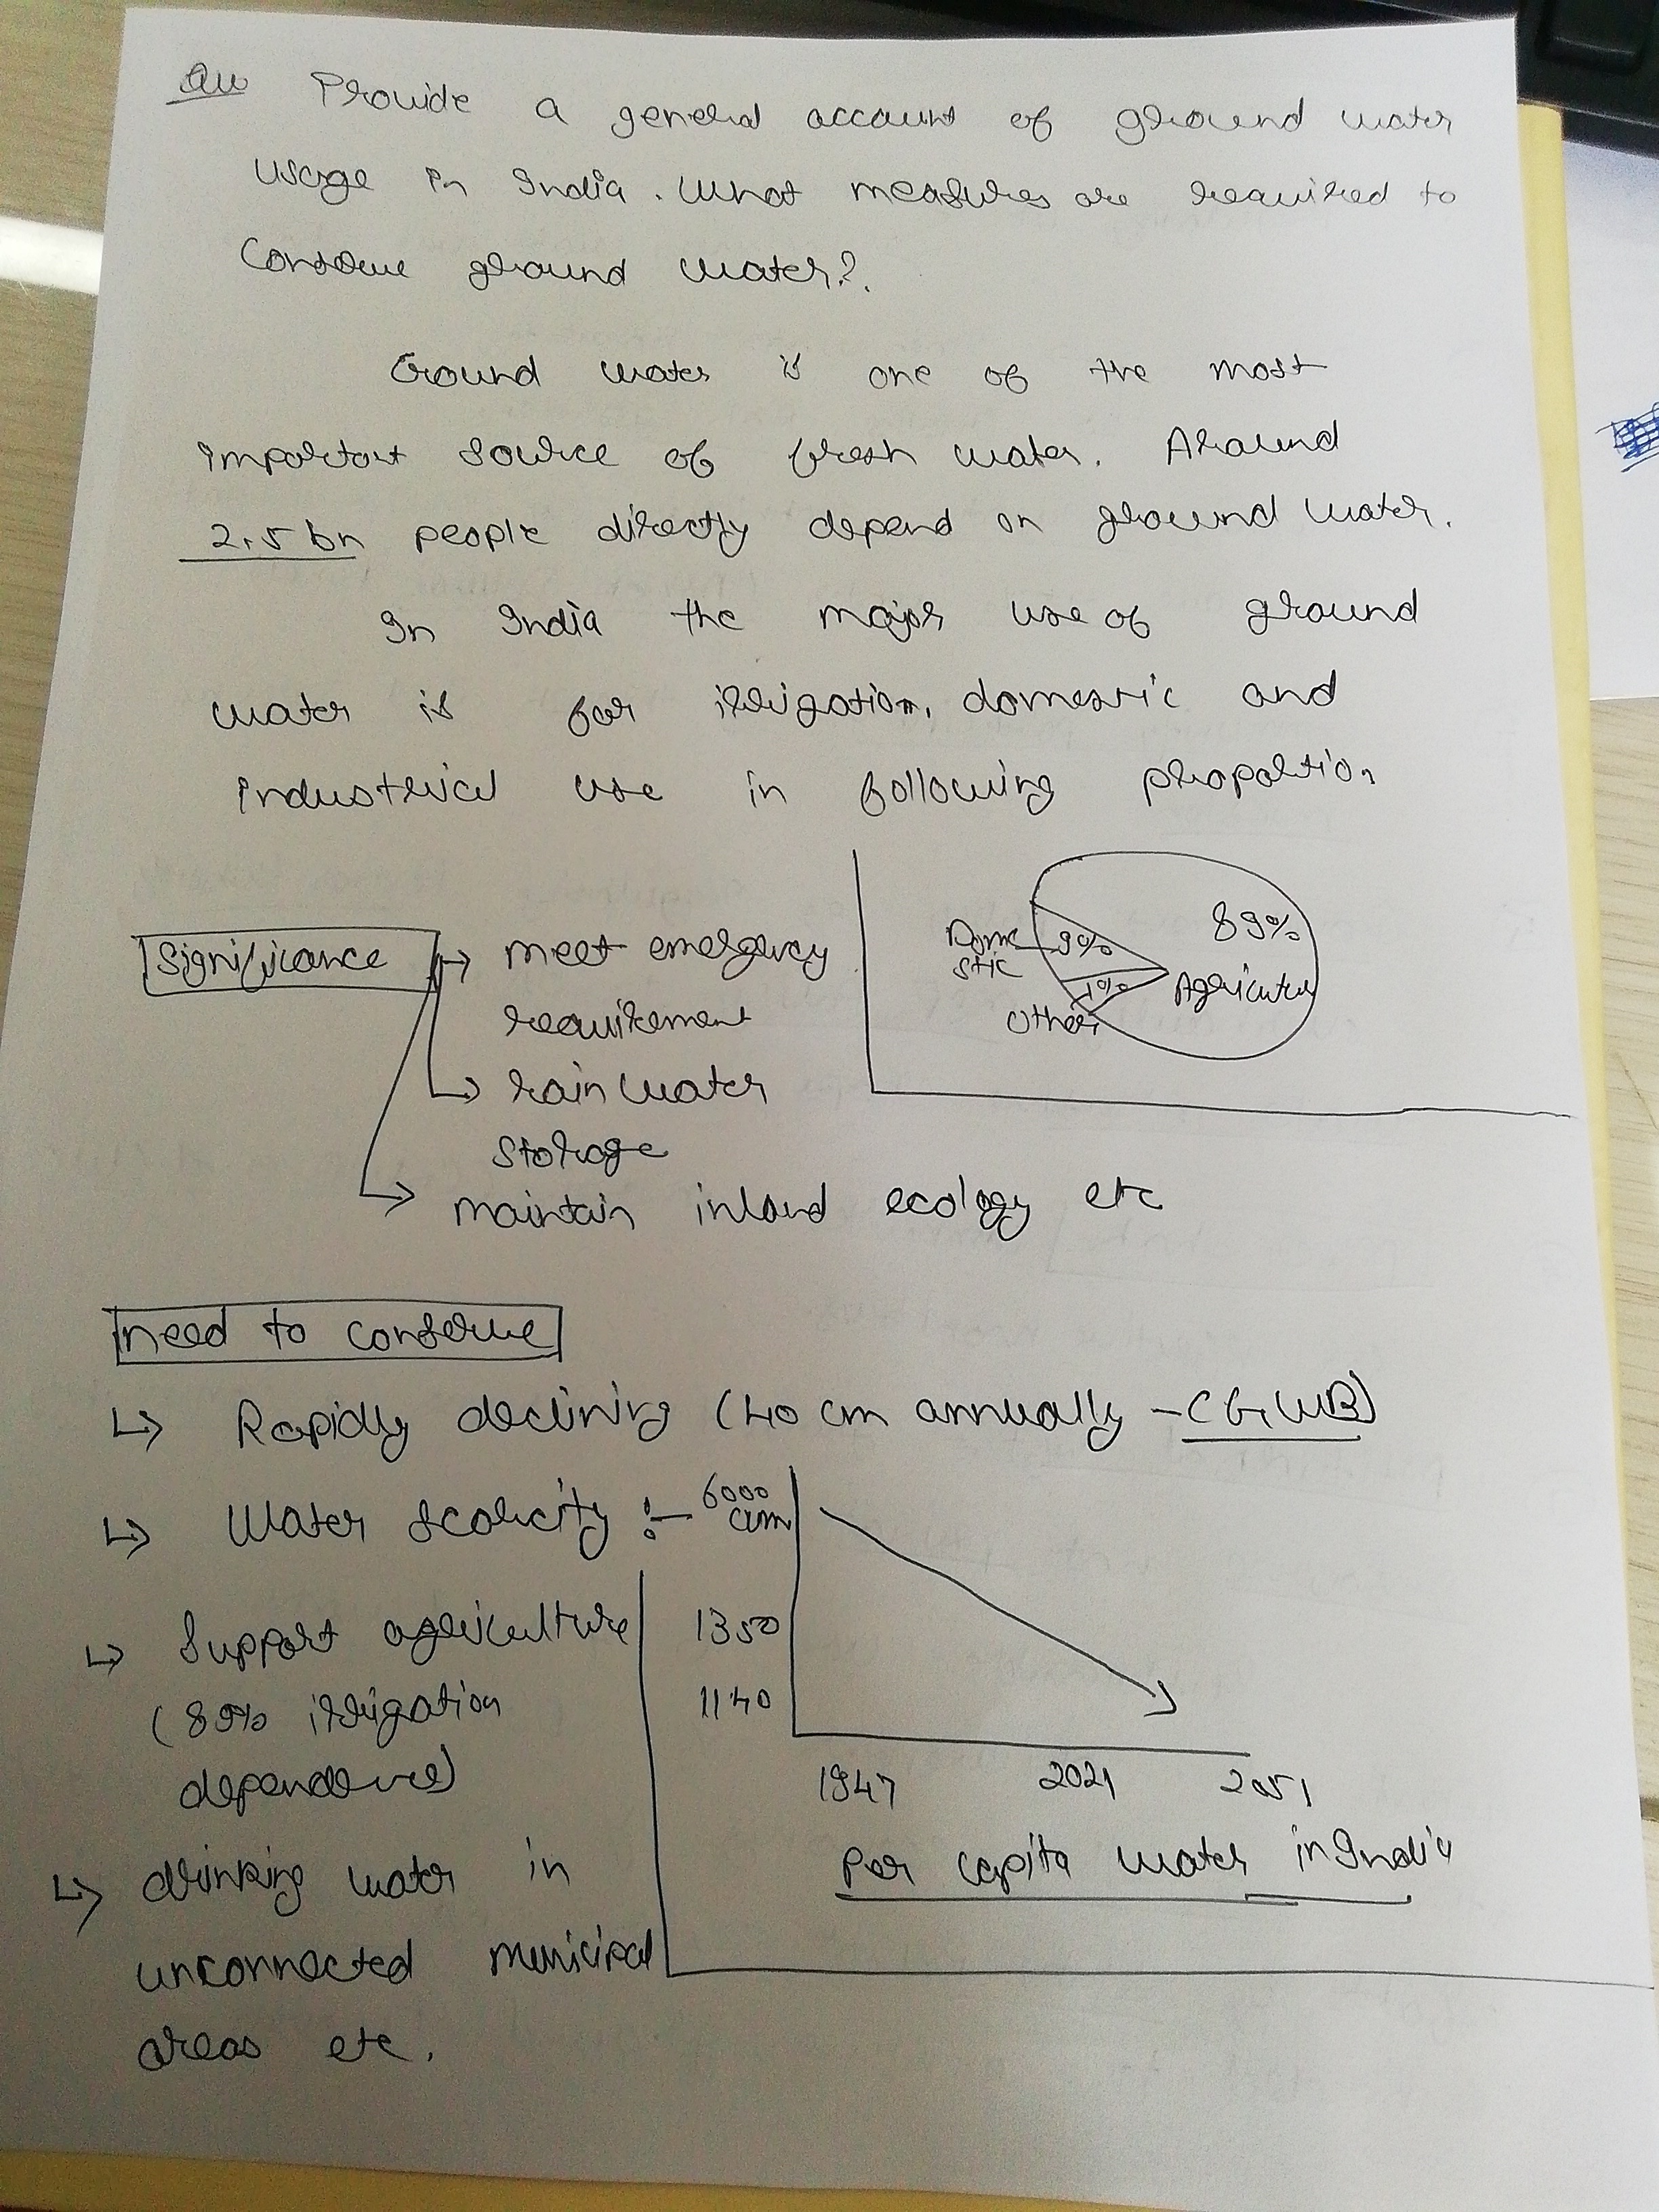 Qu Provide a general account of ground water
usage in India. What measures are required to
Conserve ground water?.
Ground water is one of the most
important source of fresh water. Around
2.5 bn people directly depend on ground water.
In India the major use of ground
water is for irrigation, domestic and
industrial use in following proportion
Significance → meet emergency
requirement
→ rain water
storage
→ maintain inland ecology etc
Dome
stic
9%
89%
Agriculture
1%
Other
need to conserve
↳ Rapidly declining (40 cm annually - CGWB)
↳ Water scarcity :-
6000
cum
1350
1140
1947 2021 2051
Per capita water in India
↳ Support agriculture
(89% irrigation
dependence)
↳ drinking water in
unconnected municipal
areas etc.